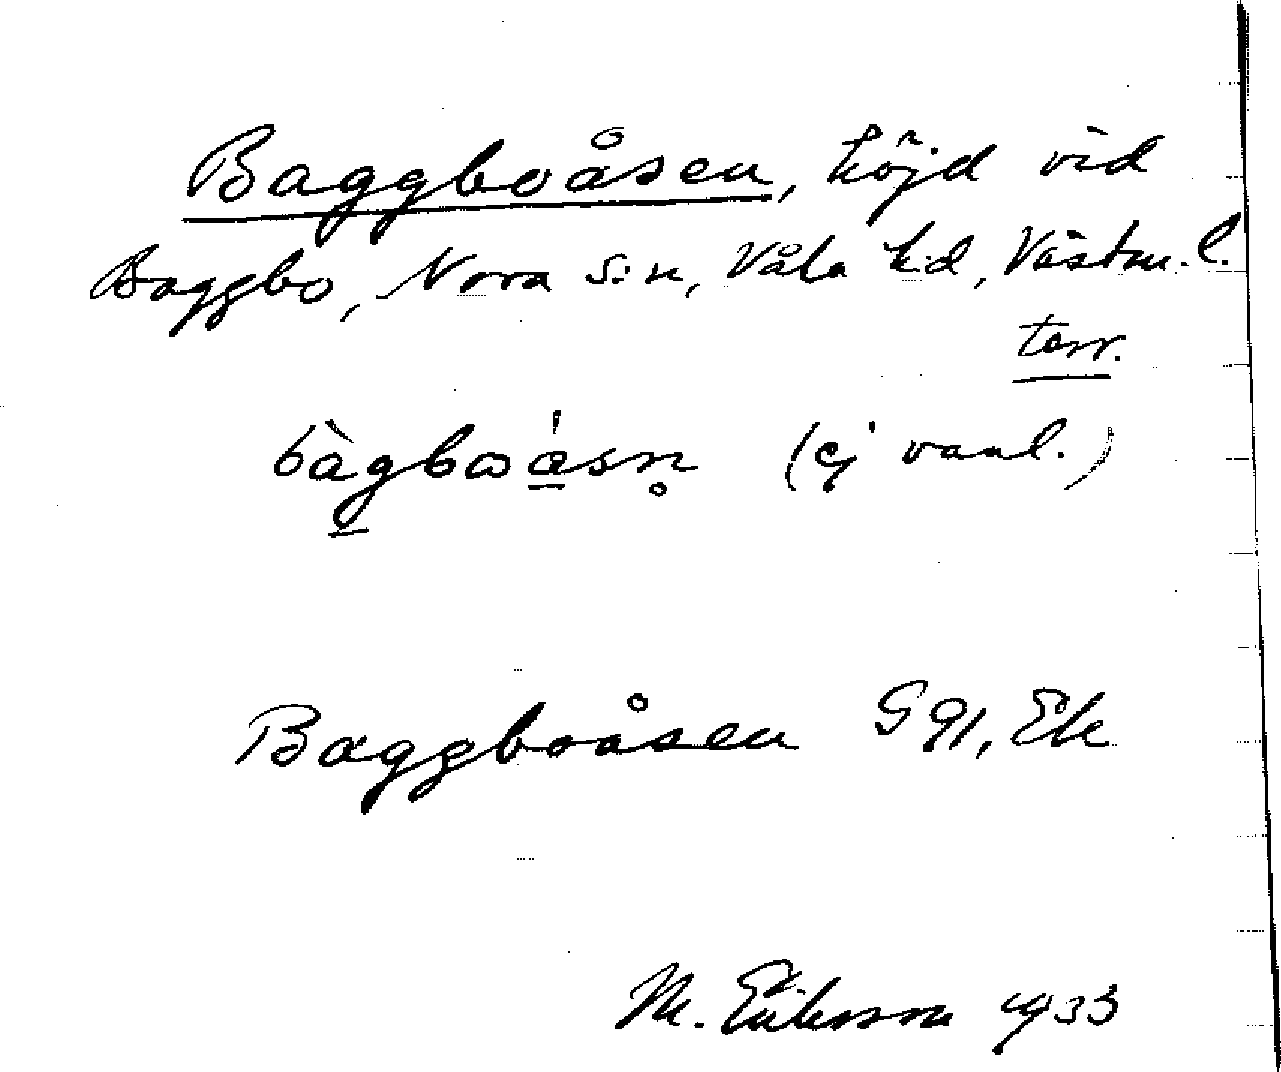 Baggboåsen, höjd vid
Baggbo, Nora s:n, Våla hd, Västm. l.
terr.
bàgbωásn̥ (ej vanl.)
Baggboåsen G 91, Ek
M. Eriksson 1933